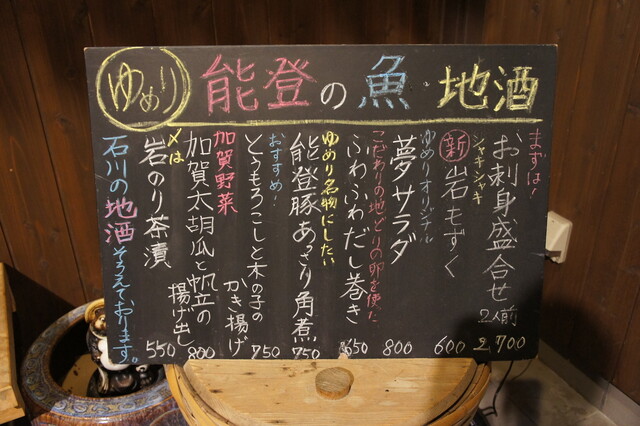 ゆめり 能登の魚・地酒
まずは!
お刺身盛合せ 2人前 2,700
シャキシャキ
新 岩もずく 600
ゆめりオリジナル
夢サラダ 800
こだわりの地どりの卵を使った
ふわふわだし巻き 650
ゆめり名物にしたい
能登豚あっさり角煮 750
おすすめ!
とうもろこしと木の子の
かき揚げ 750
加賀野菜
加賀太胡瓜と帆立の
揚げ出し 800
〆は
岩のり茶漬 550
石川の地酒そろえております。